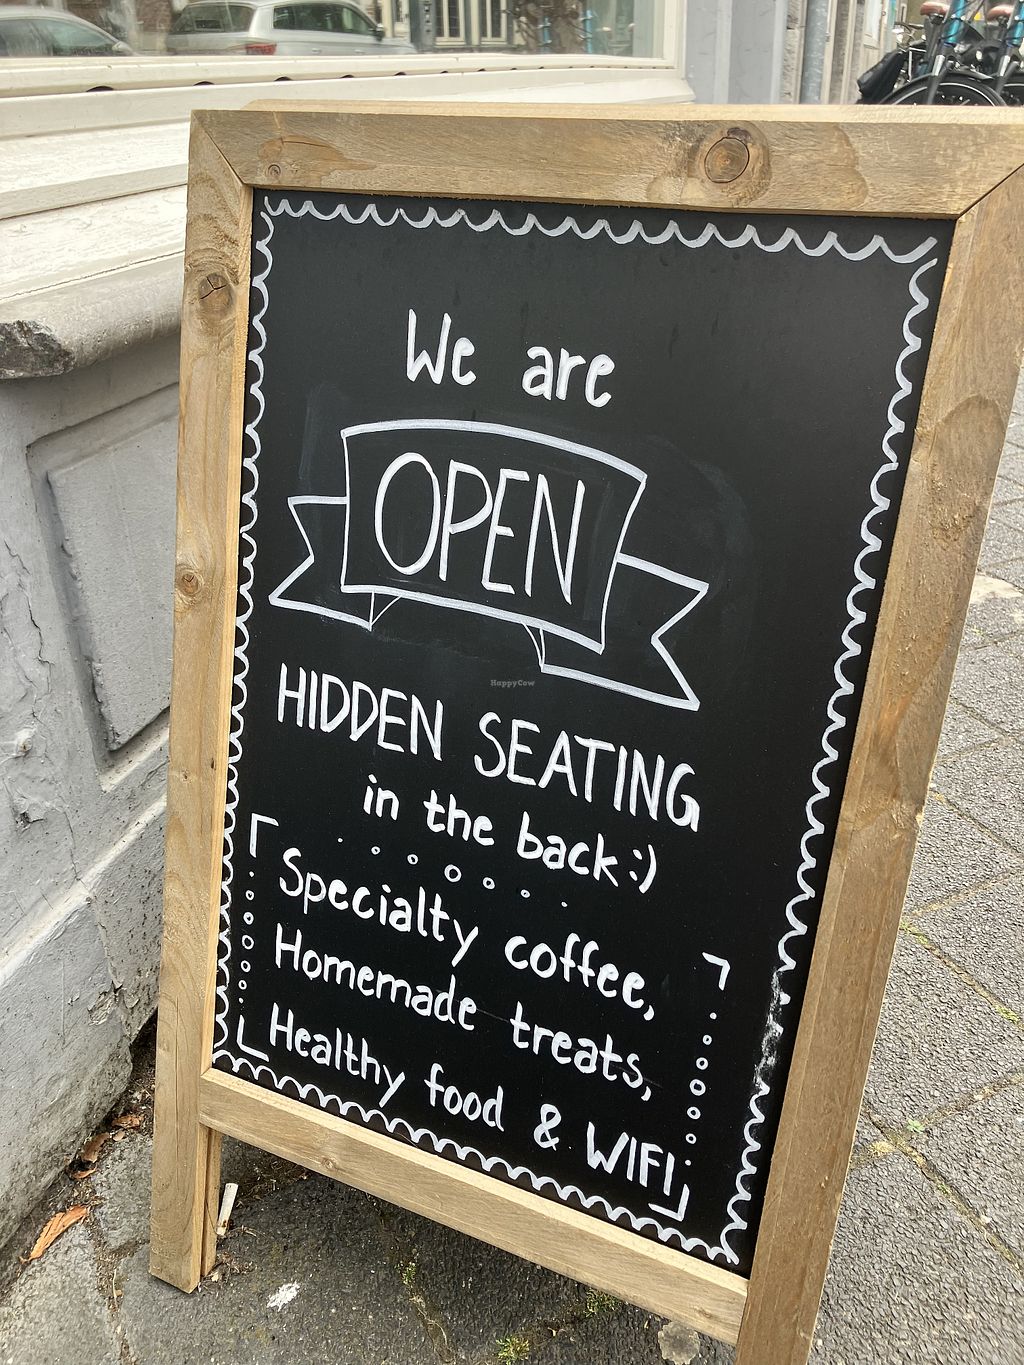 We are
OPEN
HappyCow
HIDDEN SEATING
in the back :)
Specialty coffee,
Homemade treats,
Healthy food & WIFI